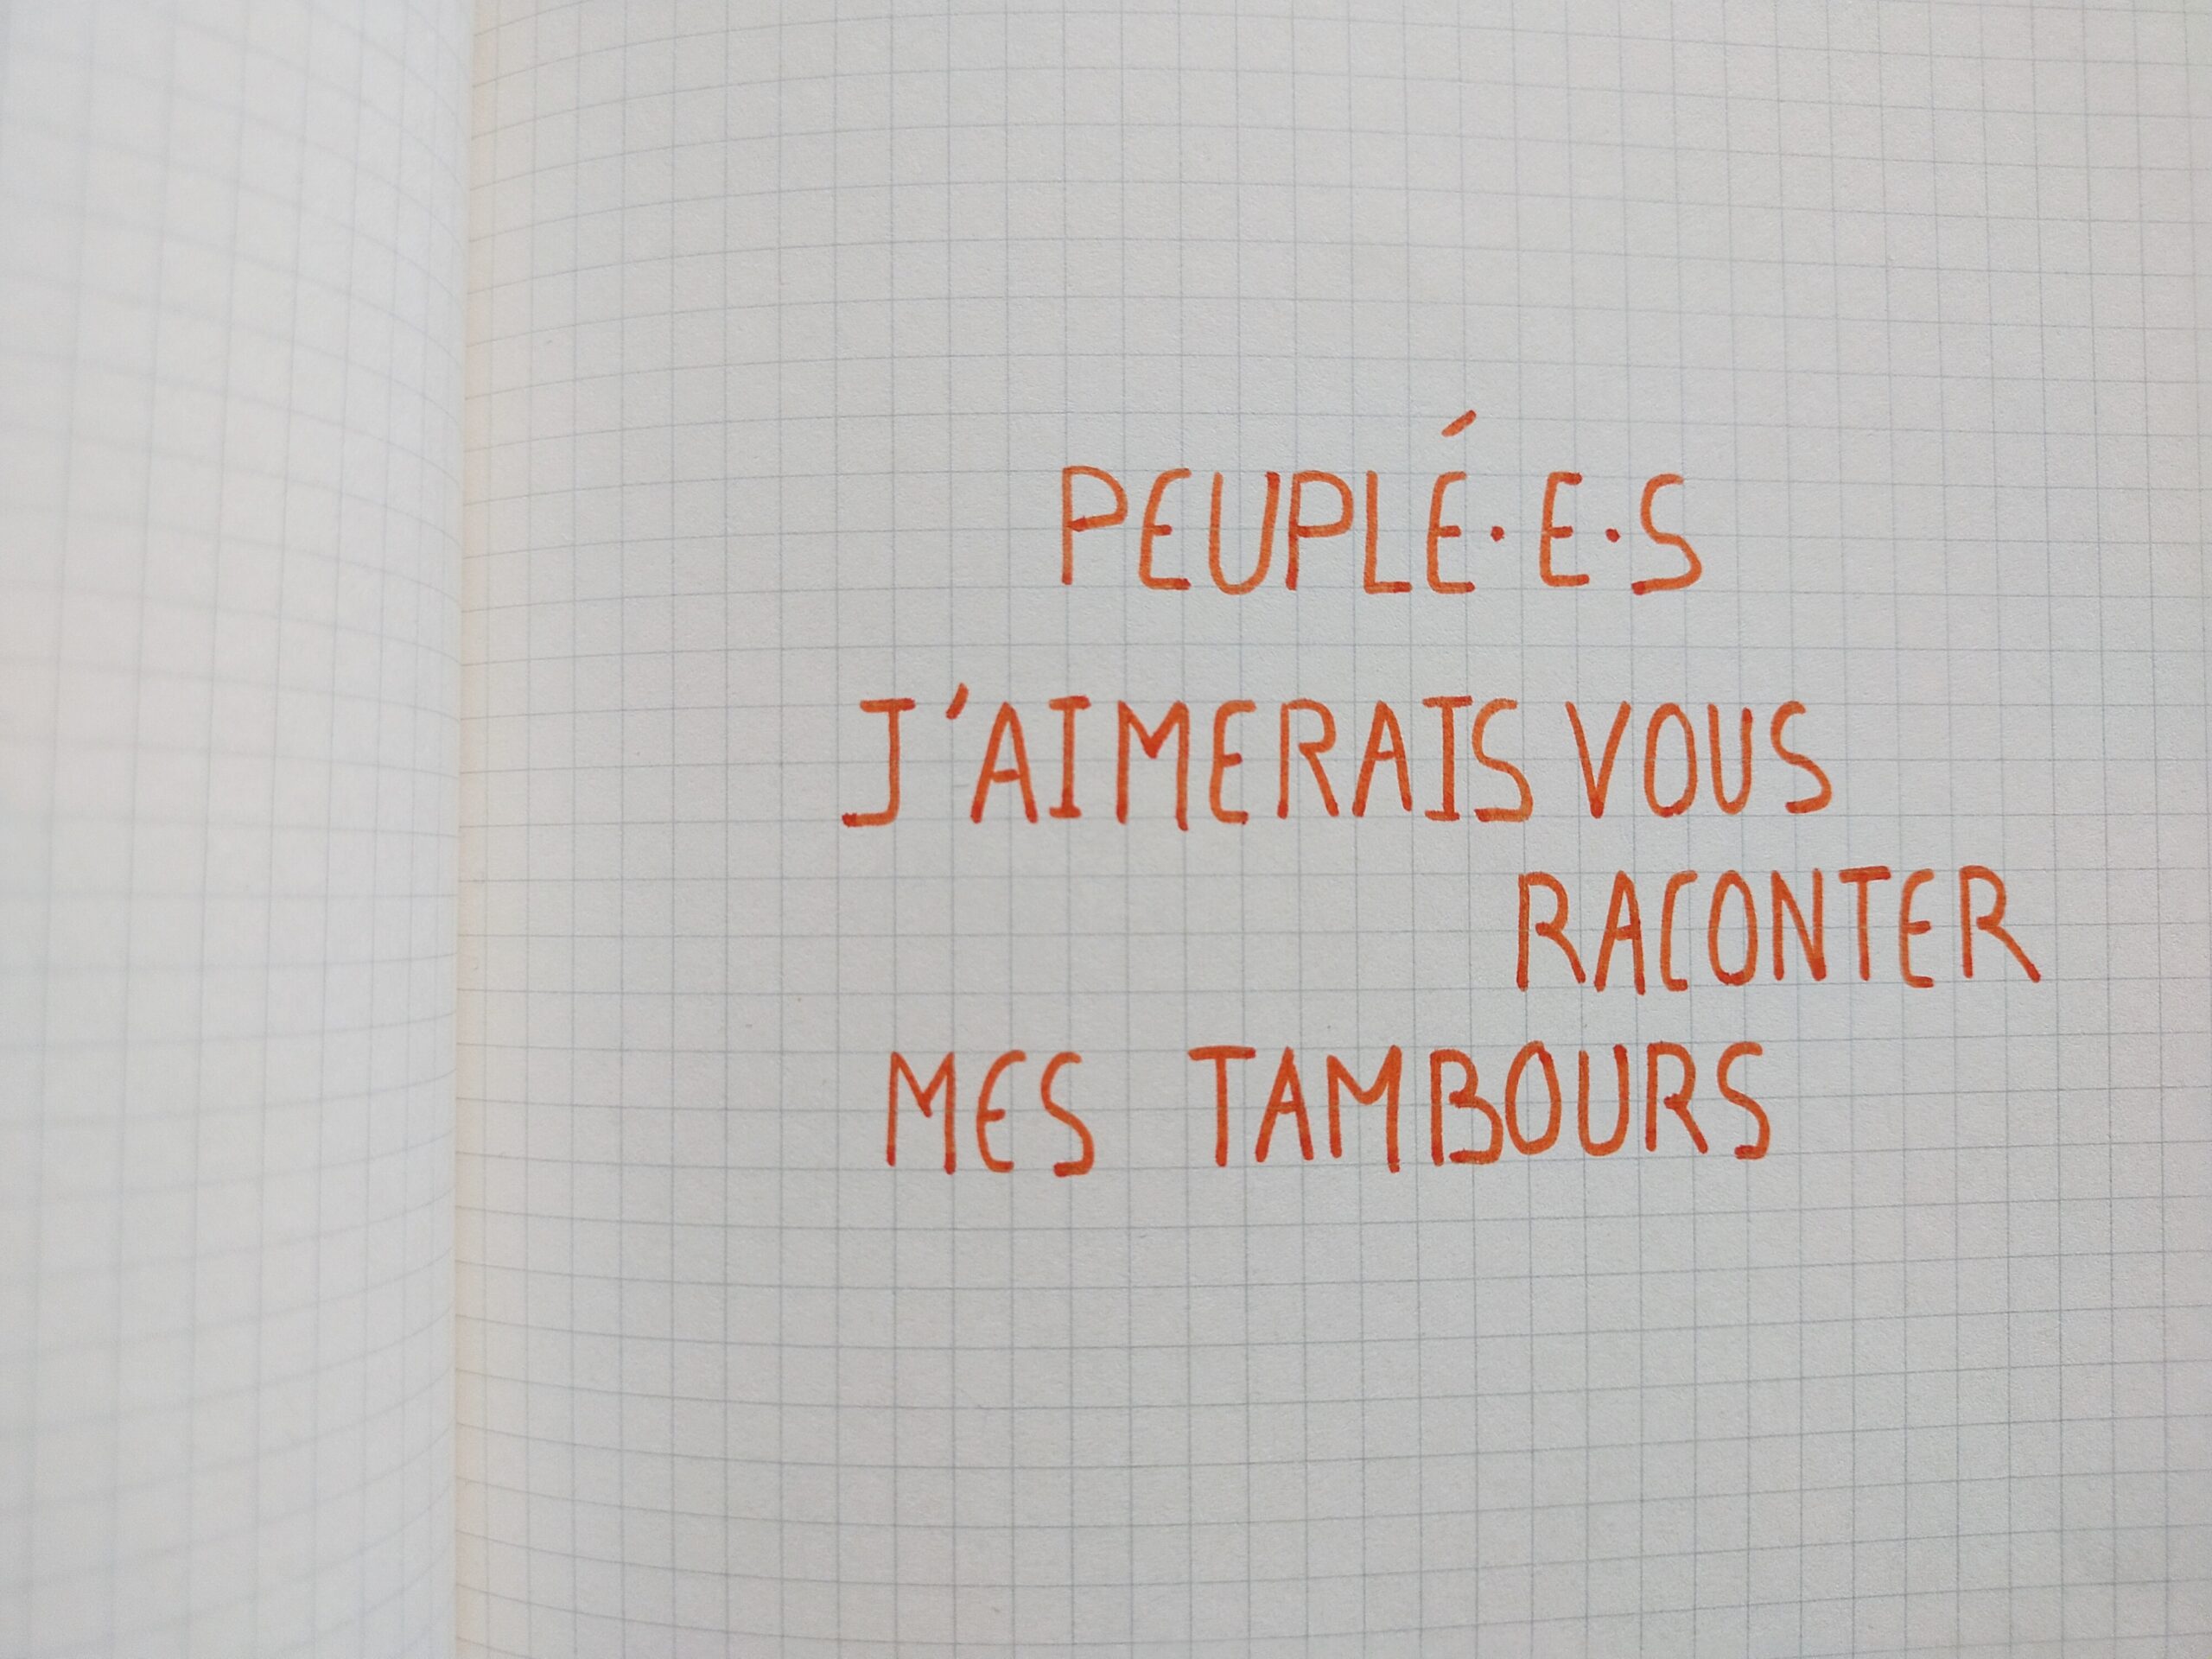 PEUPLÉ·E·S
J'AIMERAIS VOUS
RACONTER
MES TAMBOURS